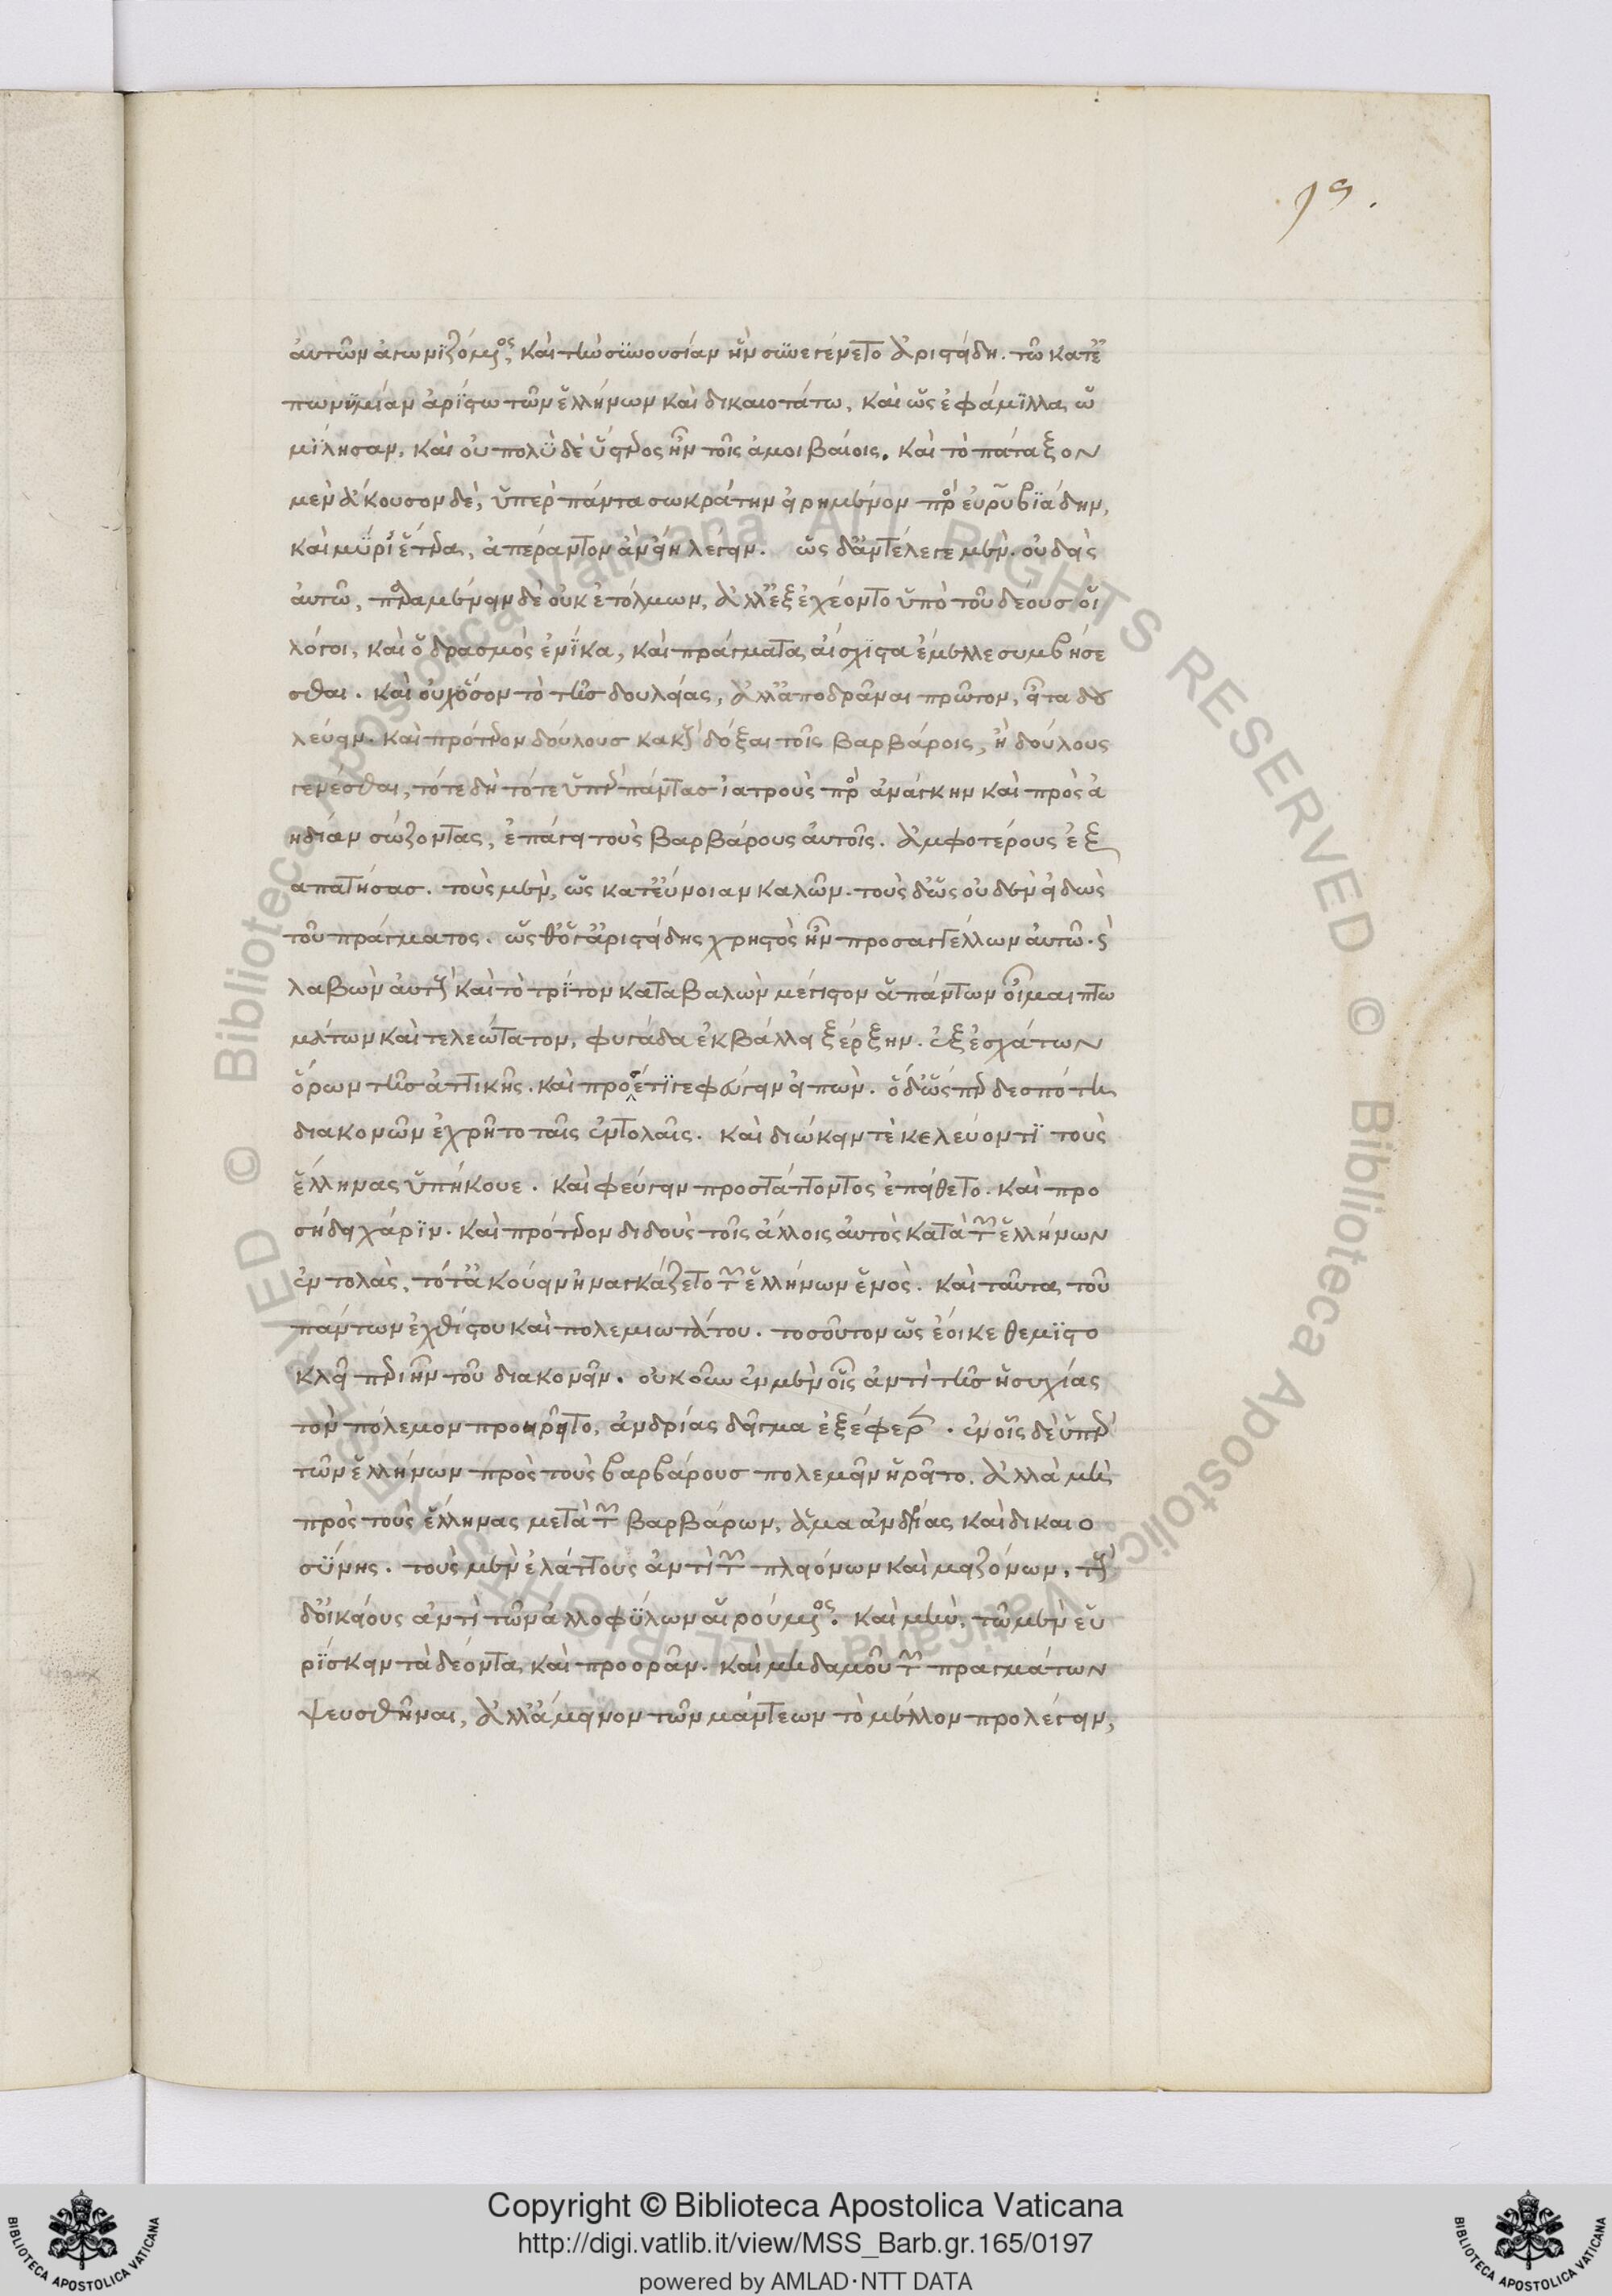 19.
ἀυτῶν ἀγωνϊζόμενος, καὶ τὴν συνουσίαν ἣν συνεγένετο Ἀριστείδη. τῶ κατ ἐ
πωνυμίαν ἀρίστω τῶν ἑλλήνων καὶ δικαιοτάτω, καὶ ὡς ἐφάμιλλα ὡ
μίλησαν, καὶ οὐ πολὺ δὲ ὕστερος ἦν τοῖς ἀμοιβαίοις. καὶ τὸ πάταξον
μὲν ἄκουσον δὲ, ὑπὲρ πάντα σωκράτην εἰρημένον πρὸς ἐυρυβϊάδην,
καὶ μυρί ἕτερα, ἀπέραντον ἂν εἴη λέγειν. ὡς δ ἀντέλεγε μὲν οὐδεὶς
ἀυτῶ, περιμένειν δὲ οὐκ ἐτόλμων, ἀλλ ἐξεχέοντο ὑπὸ τοῦ δέους οἱ
λόγοι, καὶ ὁ δρασμὸς ἐνίκα, καὶ πράγματα αἴσχιστα ἔμελλε συμβήσε
σθαι. καὶ οὐχ ὅσον τὸ τῆς δουλείας, ἀλλ ἀποδρᾶναι πρῶτον, εἶτα δου
λεύειν. καὶ πρότερον δούλους κακοὺς δόξαι τοῖς βαρβάροις, ἢ δούλους
γενέσθαι, τότε δὴ τότε ὑπὲρ πάντας ἰατροὺς πρὸς ἀνάγκην καὶ πρὸς ἀ
ηδίαν σώζοντας, ἐπάγει τοὺς βαρβάρους ἀυτοῖς. ἀμφοτέρους ἐξ
απατήσας. τοὺς μὲν, ὡς κατ ἐύνοιαν καλῶν. τοὺς δ ὡς οὐδὲν εἰδὼς
τοῦ πράγματος. ὡς θ ὅ γ ἀριστείδης χρηστὸς ἦν προσαγγέλλων ἀυτῶ.
λαβὼν ἀυτοὺς καὶ τὸ τρίτον καταβαλὼν μέγιστον ἁπάντων οἶμαι πτω
μάτων καὶ τελεώτατον, φυγάδα ἐκβάλλει ξέρξην. ἐξ ἐσχάτων
ὅρων τῆς ἀττικῆς. καὶ προσέτι γε φεύγειν εἰπών. ὁ δ ὥσπερ δεσπότη
διακονῶν ἐχρῆτο ταῖς ἐντολαῖς. καὶ διώκειν τὲ κελεύοντι τοὺς
ἕλληνας ὑπήκουε. καὶ φεύγειν προστάττοντος ἐπείθετο. καὶ προ
σήδει χάριν. καὶ πρότερον διδοὺς τοῖς ἄλλοις ἀυτὸς κατὰ τῶν ἑλλήνων
ἐντολὰς, τότ ἀκούειν ἠναγκάζετο τῶν ἑλλήνων ἑνὸς. καὶ ταῦτα τοῦ
πάντων ἐχθίστου καὶ πολεμιωτάτου. τοσοῦτον ὡς ἔοικε θεμιστο
κλεῖ περιῆν τοῦ διακονεῖν. οὐκοῦν ἐν μὲν οἷς ἀντὶ τῆς ἡσυχίας
τὸν πόλεμον προηρεῖτο, ἀνδρίας δεῖγμα ἐξέφερεν. ἐν οἷς δὲ ὑπὲρ
τῶν ἑλλήνων πρὸς τοὺς βαρβάρους πολεμεῖν ἡρεῖτο. ἀλλὰ μὴ
πρὸς τοὺς ἕλληνας μετὰ τῶν βαρβάρων, ἅμα ἀνδρίας καὶ δικαιο
σύνης. τοὺς μὲν ἐλάττους ἀντὶ τῶν πλειόνων καὶ μειζόνων, τοὺς
δ οἰκείους ἀντὶ τῶν ἀλλοφύλων αἱρούμενος. καὶ μὴν, τῶ μὲν εὑ
ρίσκειν τὰ δέοντα καὶ προορᾶν. καὶ μηδαμοῦ τῶν πραγμάτων
ψευσθῆναι, ἀλλ ἄμεινον τῶν μάντεων τὸ μέλλον προλέγειν,
Copyright © Biblioteca Apostolica Vaticana
http://digi.vatlib.it/view/MSS_Barb.gr.165/0197
powered by AMLAD·NTT DATA